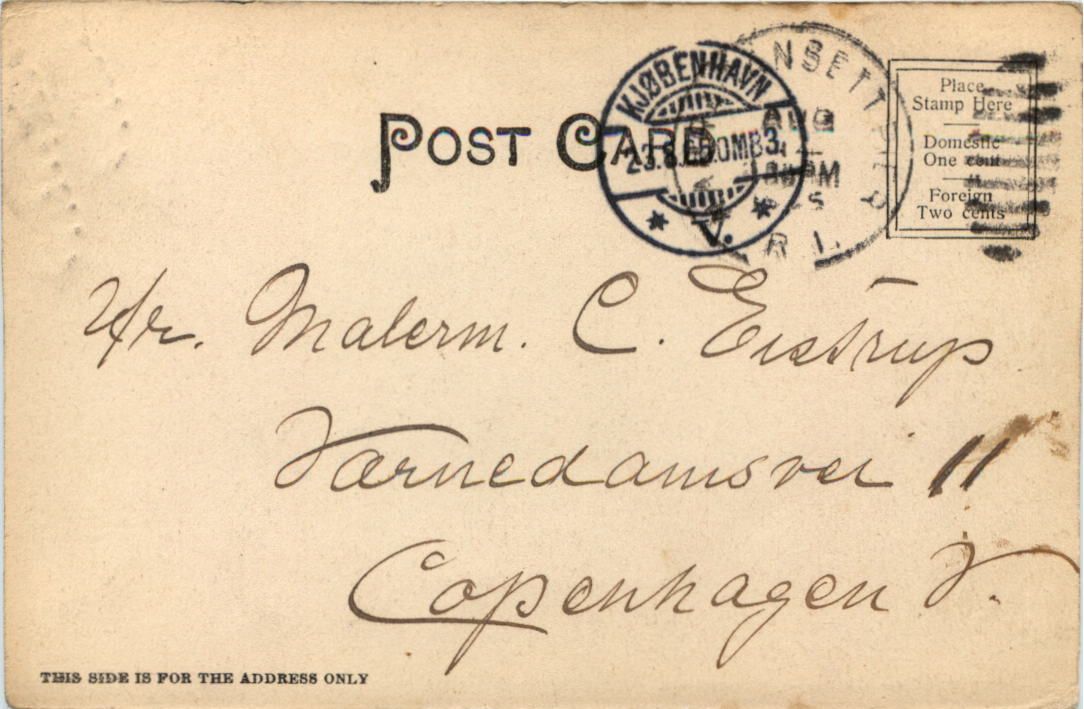 POST CARD
KJØBENHAVN
V.
NSETT
AUG
PM
R.I.
Place
Stamp Here
Domestic
One cent
Foreign
Two cents
Hr. Malerm. C. Eistrup
Værnedamsvei 11
Copenhagen V.
THIS SIDE IS FOR THE ADDRESS ONLY